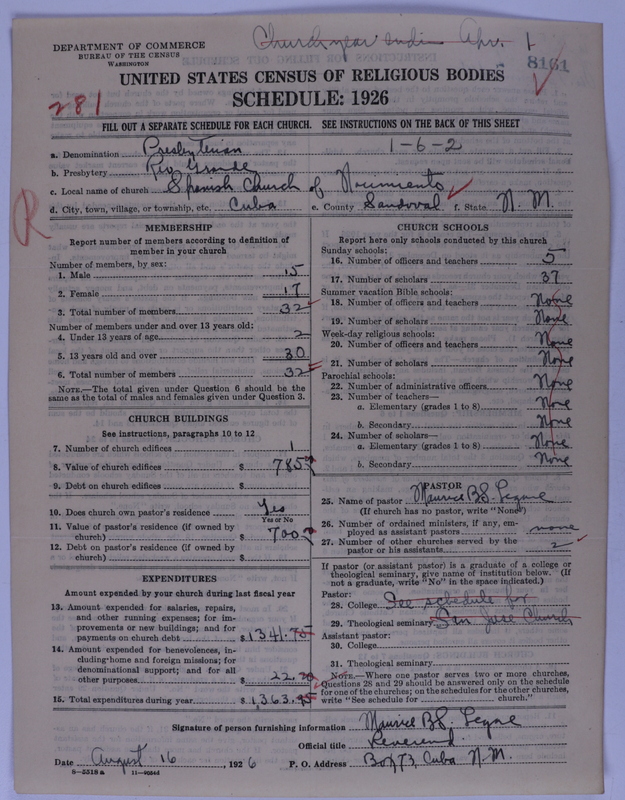 Church year ends Apr. 1
8161
DEPARTMENT OF COMMERCE
BUREAU OF THE CENSUS
WASHINGTON
UNITED STATES CENSUS OF RELIGIOUS BODIES
SCHEDULE: 1926
281
FILL OUT A SEPARATE SCHEDULE FOR EACH CHURCH. SEE INSTRUCTIONS ON THE BACK OF THIS SHEET
a. Denomination Presbyterian 1-6-2
b. Presbytery Rio Grande
c. Local name of church Spanish Church of Nacimiento
d. City, town, village, or township, etc. Cuba e. County Sandoval f. State N. M.
R
MEMBERSHIP
Report number of members according to definition of
member in your church
Number of members, by sex:
1. Male 15
2. Female 17
3. Total number of members 32
Number of members under and over 13 years old:
4. Under 13 years of age 2
5. 13 years old and over 30
6. Total number of members 32
NOTE.—The total given under Question 6 should be
same as the total of males and females given under Question 3.
CHURCH BUILDINGS
See instructions, paragraphs 10 to 12
7. Number of church edifices 1
8. Value of church edifices $ 785
9. Debt on church edifices $
10. Does church own pastor's residence Yes
Yes or No
11. Value of pastor's residence (if owned by
church) $ 700
12. Debt on pastor's residence (if owned by
church) $
EXPENDITURES
Amount expended by your church during last fiscal year
13. Amount expended for salaries, repairs,
and other running expenses; for im-
provements or new buildings; and for
payments on church debt $ 1341.75
14. Amount expended for benevolences, in-
cluding home and foreign missions; for
denominational support; and for all
other purposes 22.
15. Total expenditures during year $ 1363.
CHURCH SCHOOLS
Report here only schools conducted by this church
Sunday schools:
16. Number of officers and teachers 5
17. Number of scholars 37
Summer vacation Bible schools:
18. Number of officers and teachers None
19. Number of scholars None
Week-day religious schools:
20. Number of officers and teachers None
21. Number of scholars None
Parochial schools:
22. Number of administrative officers None
23. Number of teachers—
a. Elementary (grades 1 to 8) None
b. Secondary None
24. Number of scholars—
a. Elementary (grades 1 to 8) None
b. Secondary None
PASTOR
25. Name of pastor Maurice
(If church has no pastor, write "None")
26. Number of ordained ministers, if any, em-
ployed as assistant pastors none
27. Number of other churches served by the
pastor or his assistants 2
If pastor (or assistant pastor) is a graduate of a college or
theological seminary, give name of institution below. (If
not a graduate, write "No" in the space indicated.)
Pastor:
28. College See schedule for
29. Theological seminary San Jose Church
Assistant pastor:
30. College
31. Theological seminary
NOTE.—Where one pastor serves two or more churches,
Questions 28 and 29 should be answered only on the schedule
for one of the churches; on the schedules for the other churches,
write "See schedule for church."
Signature of person furnishing information Maurice
Official title Reverend
Date August 16, 1926 P. O. Address Box 73, Cuba N. M.
8—5518 a